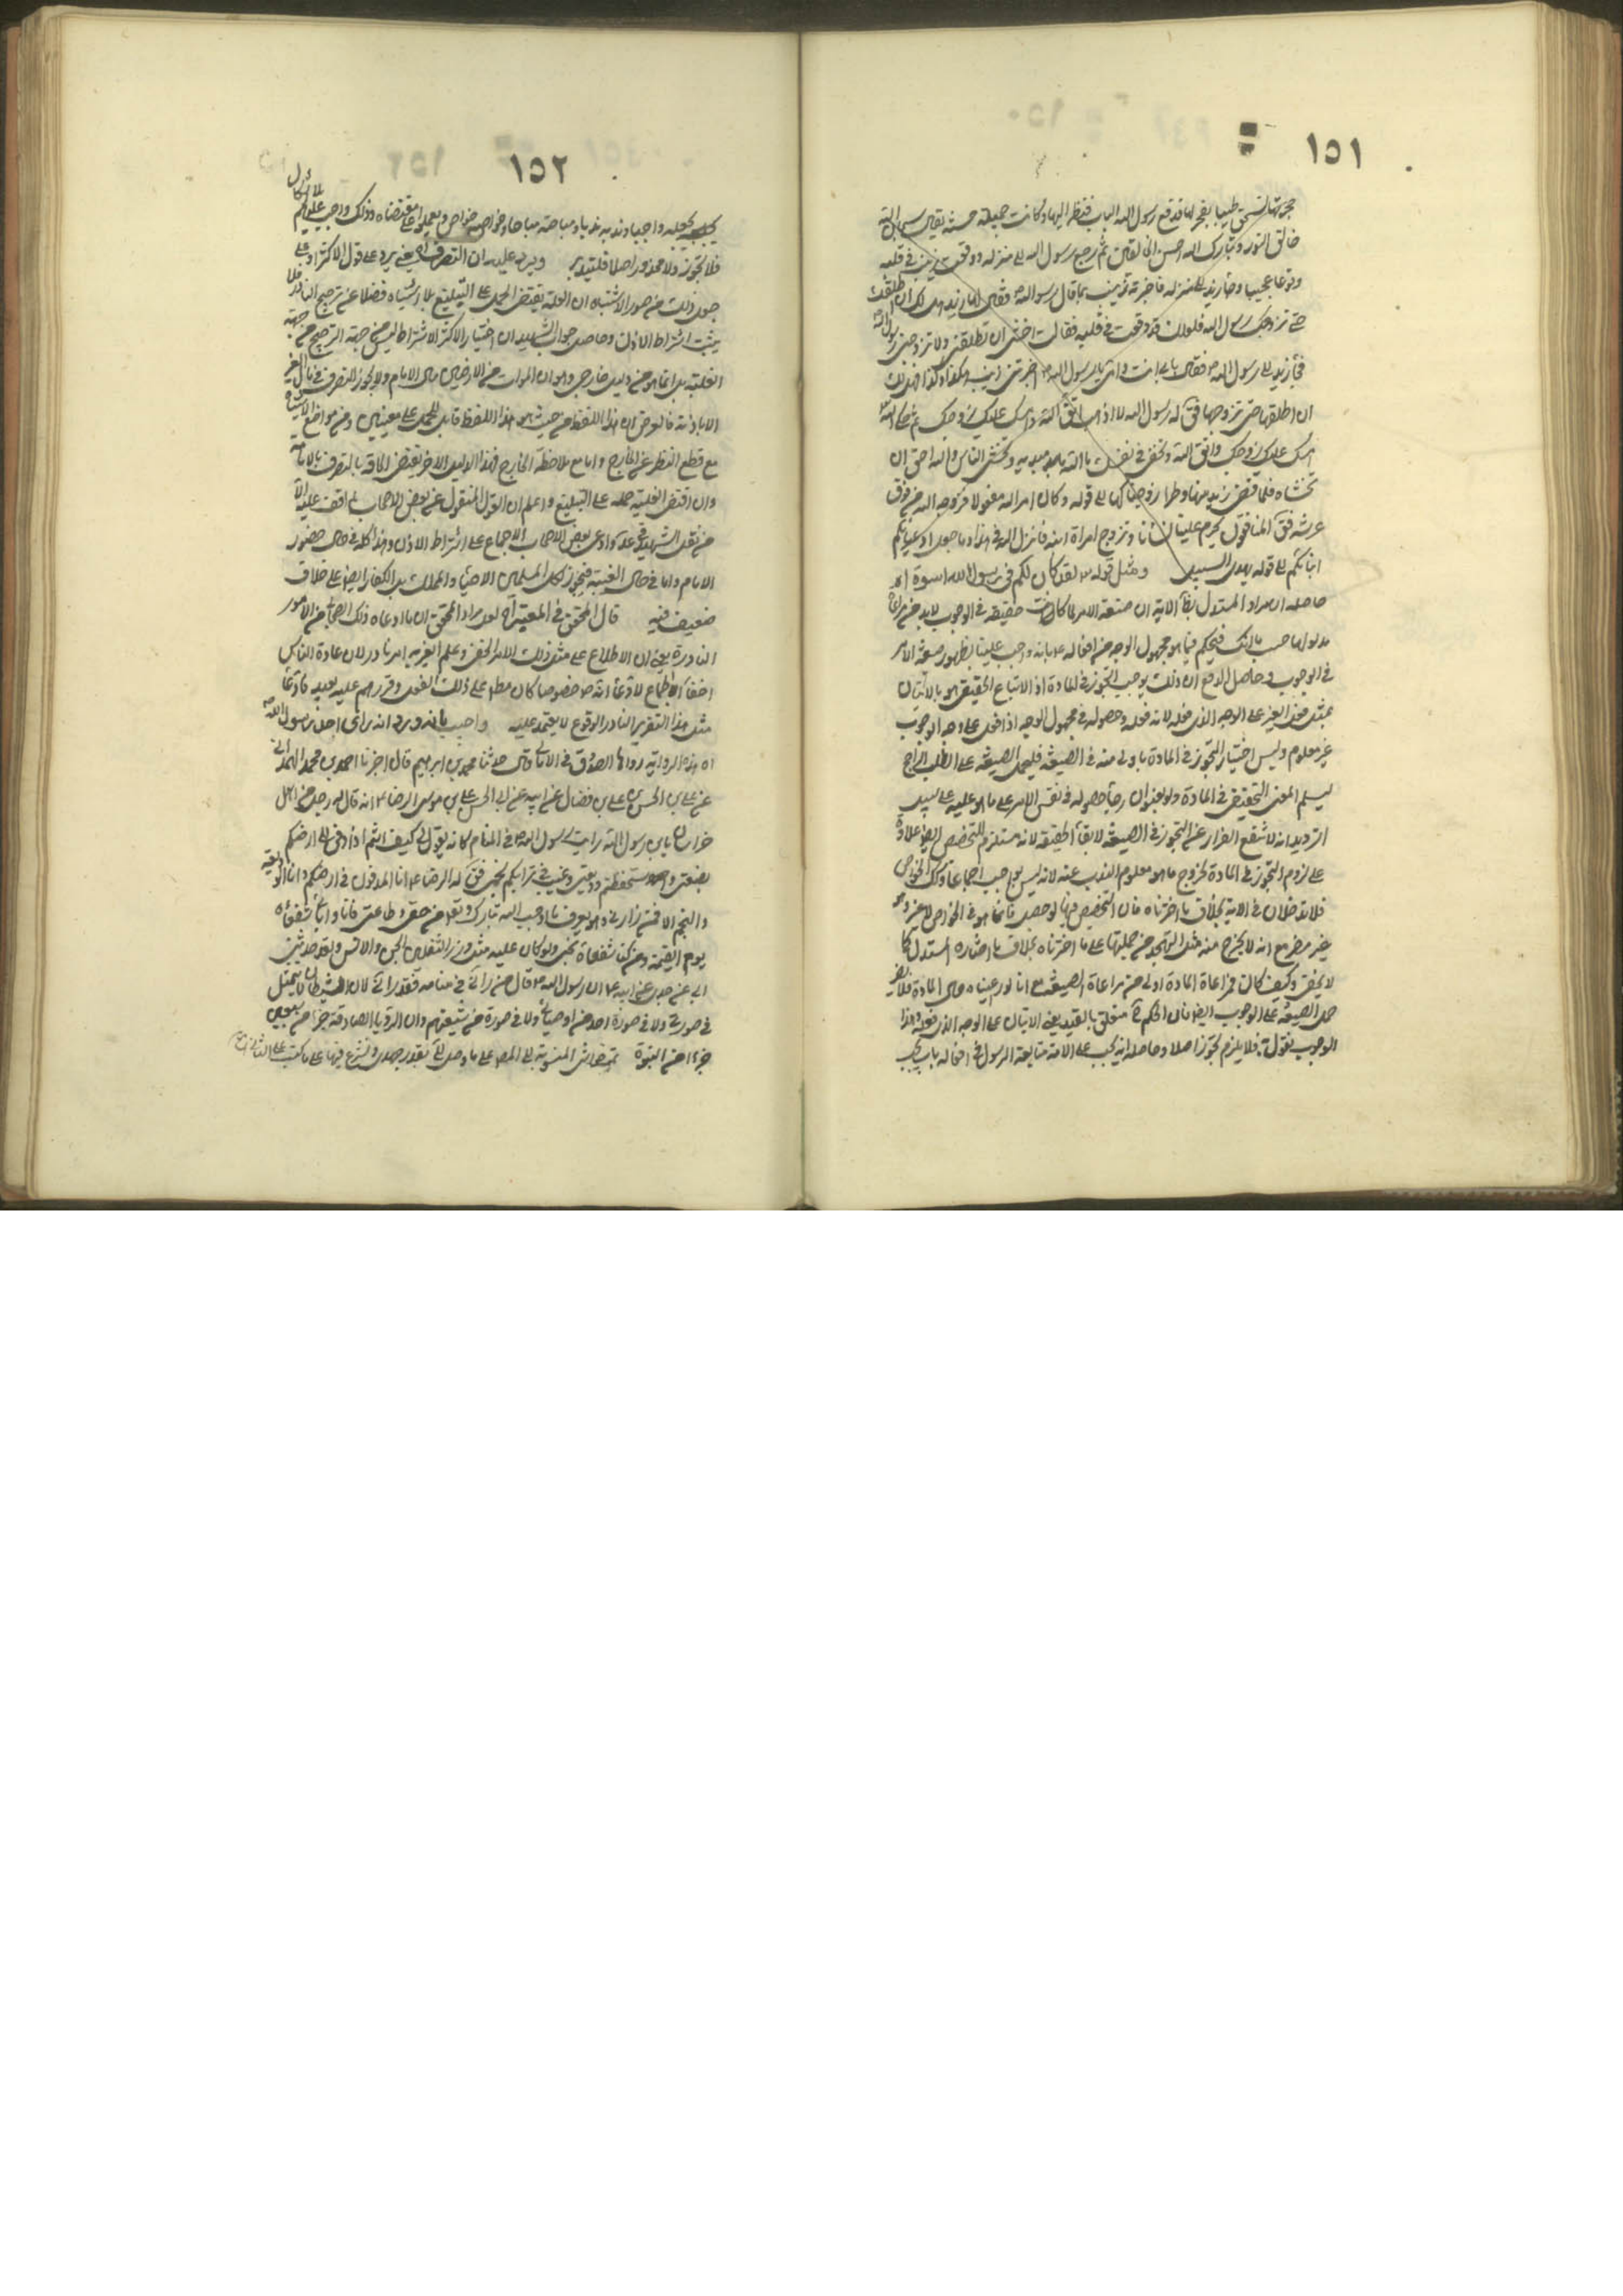 ١٥١
حجرتها تسحق طيبا بفهر لها فدفع رسول الله الباب فنظر اليها وكانت جميلة حسنة فقال سبحان الله
خالق النور وتبارك الله احسن الخالقين ثم رجع رسول الله الى منزله ووقعت زينب في قلبه
وقوعا عجيبا وجاء زيد الى منزله فاخبرته زينب بما قال رسول الله فقال لها زيد هل لك ان اطلقك
حتى تزوجك رسول الله فلعلك قد وقعت في قلبه فقالت اخشى ان تطلقني ولا تزوجني رسول الله
فجاء زيد الى رسول الله فقال بابي انت وامي يا رسول الله اخبرتني زينب بكذا وكذا فهل لك
ان اطلقها حتى تزوجها فق له رسول الله لا اذهب اتق الله وامسك عليك زوجك ثم حكى الله
امسك عليك زوجك واتق الله وتخفي في نفسك ما الله مبديه وتخشى الناس والله احق ان
تخشاه فلما قضى زيد منها وطرا زوجناكها الى قوله وكان امر الله مفعولا فزوجه الله من فوق
عرشه فق المنافقون يحرم علينا نسائنا وتزوج امراة ابنه فانزل الله في هذا وما جعل ادعياءكم
ابنائكم الى قوله يهدي السبيل ومثل قوله لقد كان لكم في رسول الله اسوة اه
حاصله ان مراد المستدل بهذه الاية ان صيغة الامر لما كانت حقيقة في الوجوب لابد من
مدلولها حسب ما امكن فيحكم فيما هو مجهول الوجه من افعاله بانه واجب علينا لظهور صيغة الامر
في الوجوب وحاصل الدفع ان ذلك يوجب التجوز في المادة اذ الاتباع الحقيقي هو بالاتيان
بمثل فعل الغير على الوجه الذي فعله لانه فعله وحصوله في مجهول الوجه اذا فعل على وجه الوجوب
غير معلوم وليس اختيار التجوز في المادة باولى منه في الصيغة فليحمل الصيغة على الطلب الراجح
ليسلم المعنى الحقيقي في المادة
الترديد انه لا ينفع الفرار عن التجوز في الصيغة لابقاء الحقيقة لانه مستلزم للتخصيص ايضا علاوة
على لزوم التجوز في المادة لخروج ما هو معلوم الندب عنه لانه ليس بواجب اجماعا وكذلك الخواص
فلا تدخلان في الاية بخلاف ما اخترناه فان التخصيص فيها لو حصل فانما هو في الخواص لا غير وهو
غير مضر مع انه لا يخرج منه مثل التهجد من جملتها على ما اخترناه بخلاف ما اختاره المستدل كما
لا يخفى وكيف كان فمراعاة المادة اولى من مراعاة الصيغة مع انا لو رعينا حال المادة فلا يضر
حمل الصيغة على الوجوب ايضا فان الحكم متعلق بالقيد يعني الاتيان على الوجه الذي فعله وهذا
الوجوب نقول به فلا يلزم تجوز اصلا وحاصله انه يجب على الامة متابعة الرسول في افعاله بان يجب
١٥٢
واجبا وندبه ندبا ومباحه مباحا وخواصه خواص ويعملوا على مقتضاه وذلك واجب عليهم
فلا تجوز ولا محذور اصلا فليتدبر ويرد عليه ان التصرف اه يعني يرد على قول الاكثر او على
جعل ذلك من صور الاشتباه ان الغلبة يقتضي الحمل على التبليغ بلا اشتباه فضلا عن ترجيح النادر فلا
يثبت اشتراط الاذن وحاصل جواب الشهيد ان اختيار الاكثر الاشتراط ليس من جهة الترجيح من جهة
الغلبة بل انما هو من دليل خارجي وهو ان الموات من الارضين مال الامام ولا يجوز التصرف في مال الغير
الا باذنه فالغرض ان هذا اللفظ من حيث هو هذا اللفظ قابل للحمل على معنيين ومن مواضع الاشتباه
مع قطع النظر عن الخارج واما مع ملاحظة الخارج فهذا الدليل الاخر يقتضي الحاقه بالتصرف بالامامة
وان اقتضى الغلبة حمله على التبليغ واعلم ان القول المنقول عن بعض الاصحاب لم اقف عليه الا
من نقل الشهيد في عد وادعى بعض الاصحاب الاجماع على اشتراط الاذن وهذا كله في حال حضور
الامام واما في حال الغيبة فيجوز لكل المسلمين الاحياء والتملك بل الكفار ايضا على خلاف
ضعيف فيه قال المحقق في المعتبر اه لعل مراد المحقق ان ما ادعاه ذلك الصحابي من الامور
النادرة يعني ان الاطلاع على مثل ذلك الامر الخفي وعلم الغير به امر نادر لان عادة الناس
اخفاء الجماع لا ادعاء انه ص خصوصا كان مطلعا على ذلك الفعل وقررهم عليه بعيد فادعاء
مثل هذا التقرير النادر الوقوع لا يعتمد عليه واجيب بانه ورد انه راى احد رسول الله
اه هذه الرواية رواها الصدوق في الامالي قال حدثنا محمد بن ابراهيم قال اخبرنا احمد بن محمد الهمداني
عن علي بن الحسن بن علي بن فضال عن ابيه عن ابي الحسن علي بن موسى الرضا انه قال له رجل من اهل
خراسان يا بن رسول الله رايت رسول الله في المنام كانه يقول لي كيف انتم اذا دفن في ارضكم
بضعتي واستحفظتم وديعتي وغيب في ترابكم نجمي فق له الرضا انا المدفون في ارضكم وانا الوديعة
والنجم الا فمن زارني وهو يعرف ما اوجب الله تبارك وتعالى من حقي وطاعتي فانا وابائي شفعاؤه
يوم القيمة ومن كنا شفعاءه نجى ولو كان عليه مثل وزر الثقلين الجن والانس ولقد حدثني
ابي عن جدي عن ابيه ان رسول الله قال من راني في منامه فقد راني لان الشيطان لا يتمثل
في صورتي ولا في صورة احد من اوصيائي ولا في صورة من شيعتهم وان الرؤيا الصادقة جزء من سبعين
جزءا من النبوة